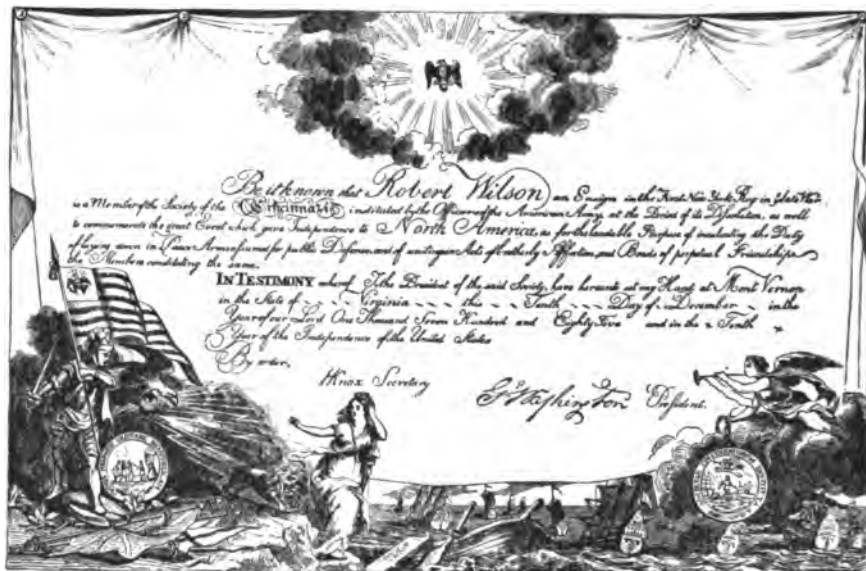 Be it known that Robert Wilson an Ensign in the First New York Reg in late War
is a Member of the Society of the Cincinnati instituted by the Officers of the American Army, at the Period of its Dissolution, as well
to commemorate the great Event which gave Independence to North America, as for the laudable Purpose of inculcating the Duty
of laying down in Peace Arms assumed for public Defence, and of uniting in Acts of brotherly Affection, and Bonds of perpetual Friendship
the Members constituting the same.
IN TESTIMONY whereof I, the President of the said Society, have hereunto set my Hand at Mont Vernon
in the State of Virginia this Tenth Day of December in the
Year of our Lord One Thousand Seven Hundred and Eighty Five and in the Tenth
Year of the Independence of the United States
By order,
HKnox Secretary
G Washington President.